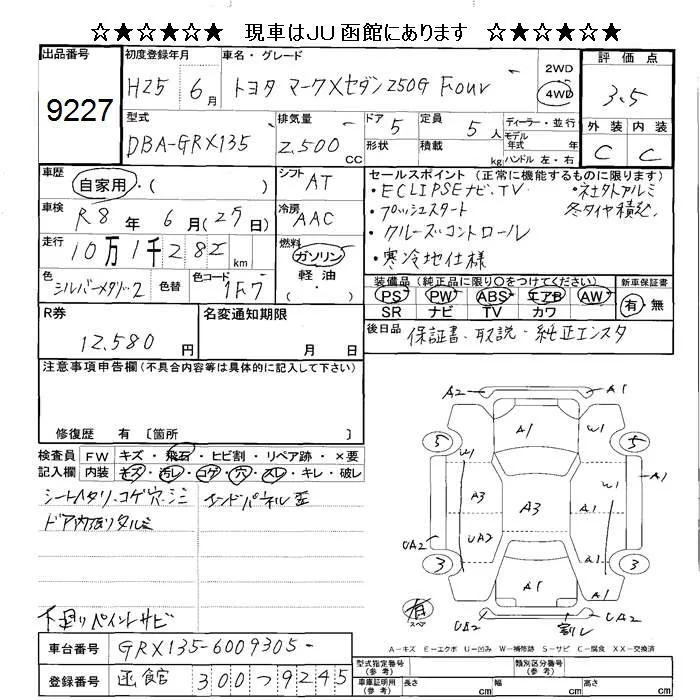 ☆★☆★☆★ 現車はJU函館にあります ☆★☆★☆★
出品番号 9227
初度登録年月 H25 年 6月
車名・グレード トヨタ マークXセダン 250G Four
2WD 4WD
評価点 3.5
外装 C 内装 C
型式 DBA-GRX135
排気量 2,500 CC
ドア 5 形状
定員 5人 積載 kg
ディーラー・並行
モデル年式 年
ハンドル 左・右
車歴 自家用・( )
シフト AT
車検 R8年 6月(25日)
冷房 AAC
走行 10万1千282km
燃料 ガソリン 軽油 ( )
色 シルバーメタリック 色替
色コード 1F7
セールスポイント (正常に機能するものに限ります)
・ECLIPSEナビ、TV ・社外アルミ
・プッシュスタート 冬タイヤ積込
・クルーズコントロール
・寒冷地仕様
装備品(純正品に限り○をつけてください)
PS PW ABS エアB AW
SR ナビ TV カワ
新車保証書 有・無
R券 12,580円
名変通知期限 月 日
後日品 保証書、取説・純正エンスタ
注意事項申告欄(不具合内容等は具体的に記入して下さい)
修復歴 有 〔箇所 〕
検査員記入欄
FW キズ・飛石・ヒビ割・リペア跡・×要
内装 キズ・汚レ・コゲ・穴・スレ・キレ・破レ
シートヘタリ、コゲ穴、シミ エンドパネル歪
ドア内張りタルミ
下廻りペイントサビ
A2 A1
5 A1 W1 W1 5
A1
A3 A3 A1
UA2 UA2
3 A1 A1 3
有 スペア UA2 割レ UA2
A-キズ E-エクボ U-凹み W-補修跡 S-サビ C-腐食 XX-交換済
車台番号 GRX135-6009305-
登録番号 函館 300つ9245
型式指定番号(参考) 類別区分番号(参考)
車庫証明用(参考) 長さ cm 幅 cm 高さ cm